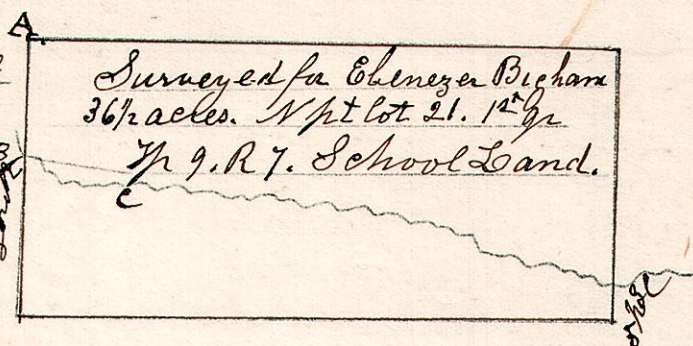 A
Surveyed for Ebenezer Bigham
36½ acres. N pt lot 21. 1st qr
Tp 9. R 7. School Land.
C